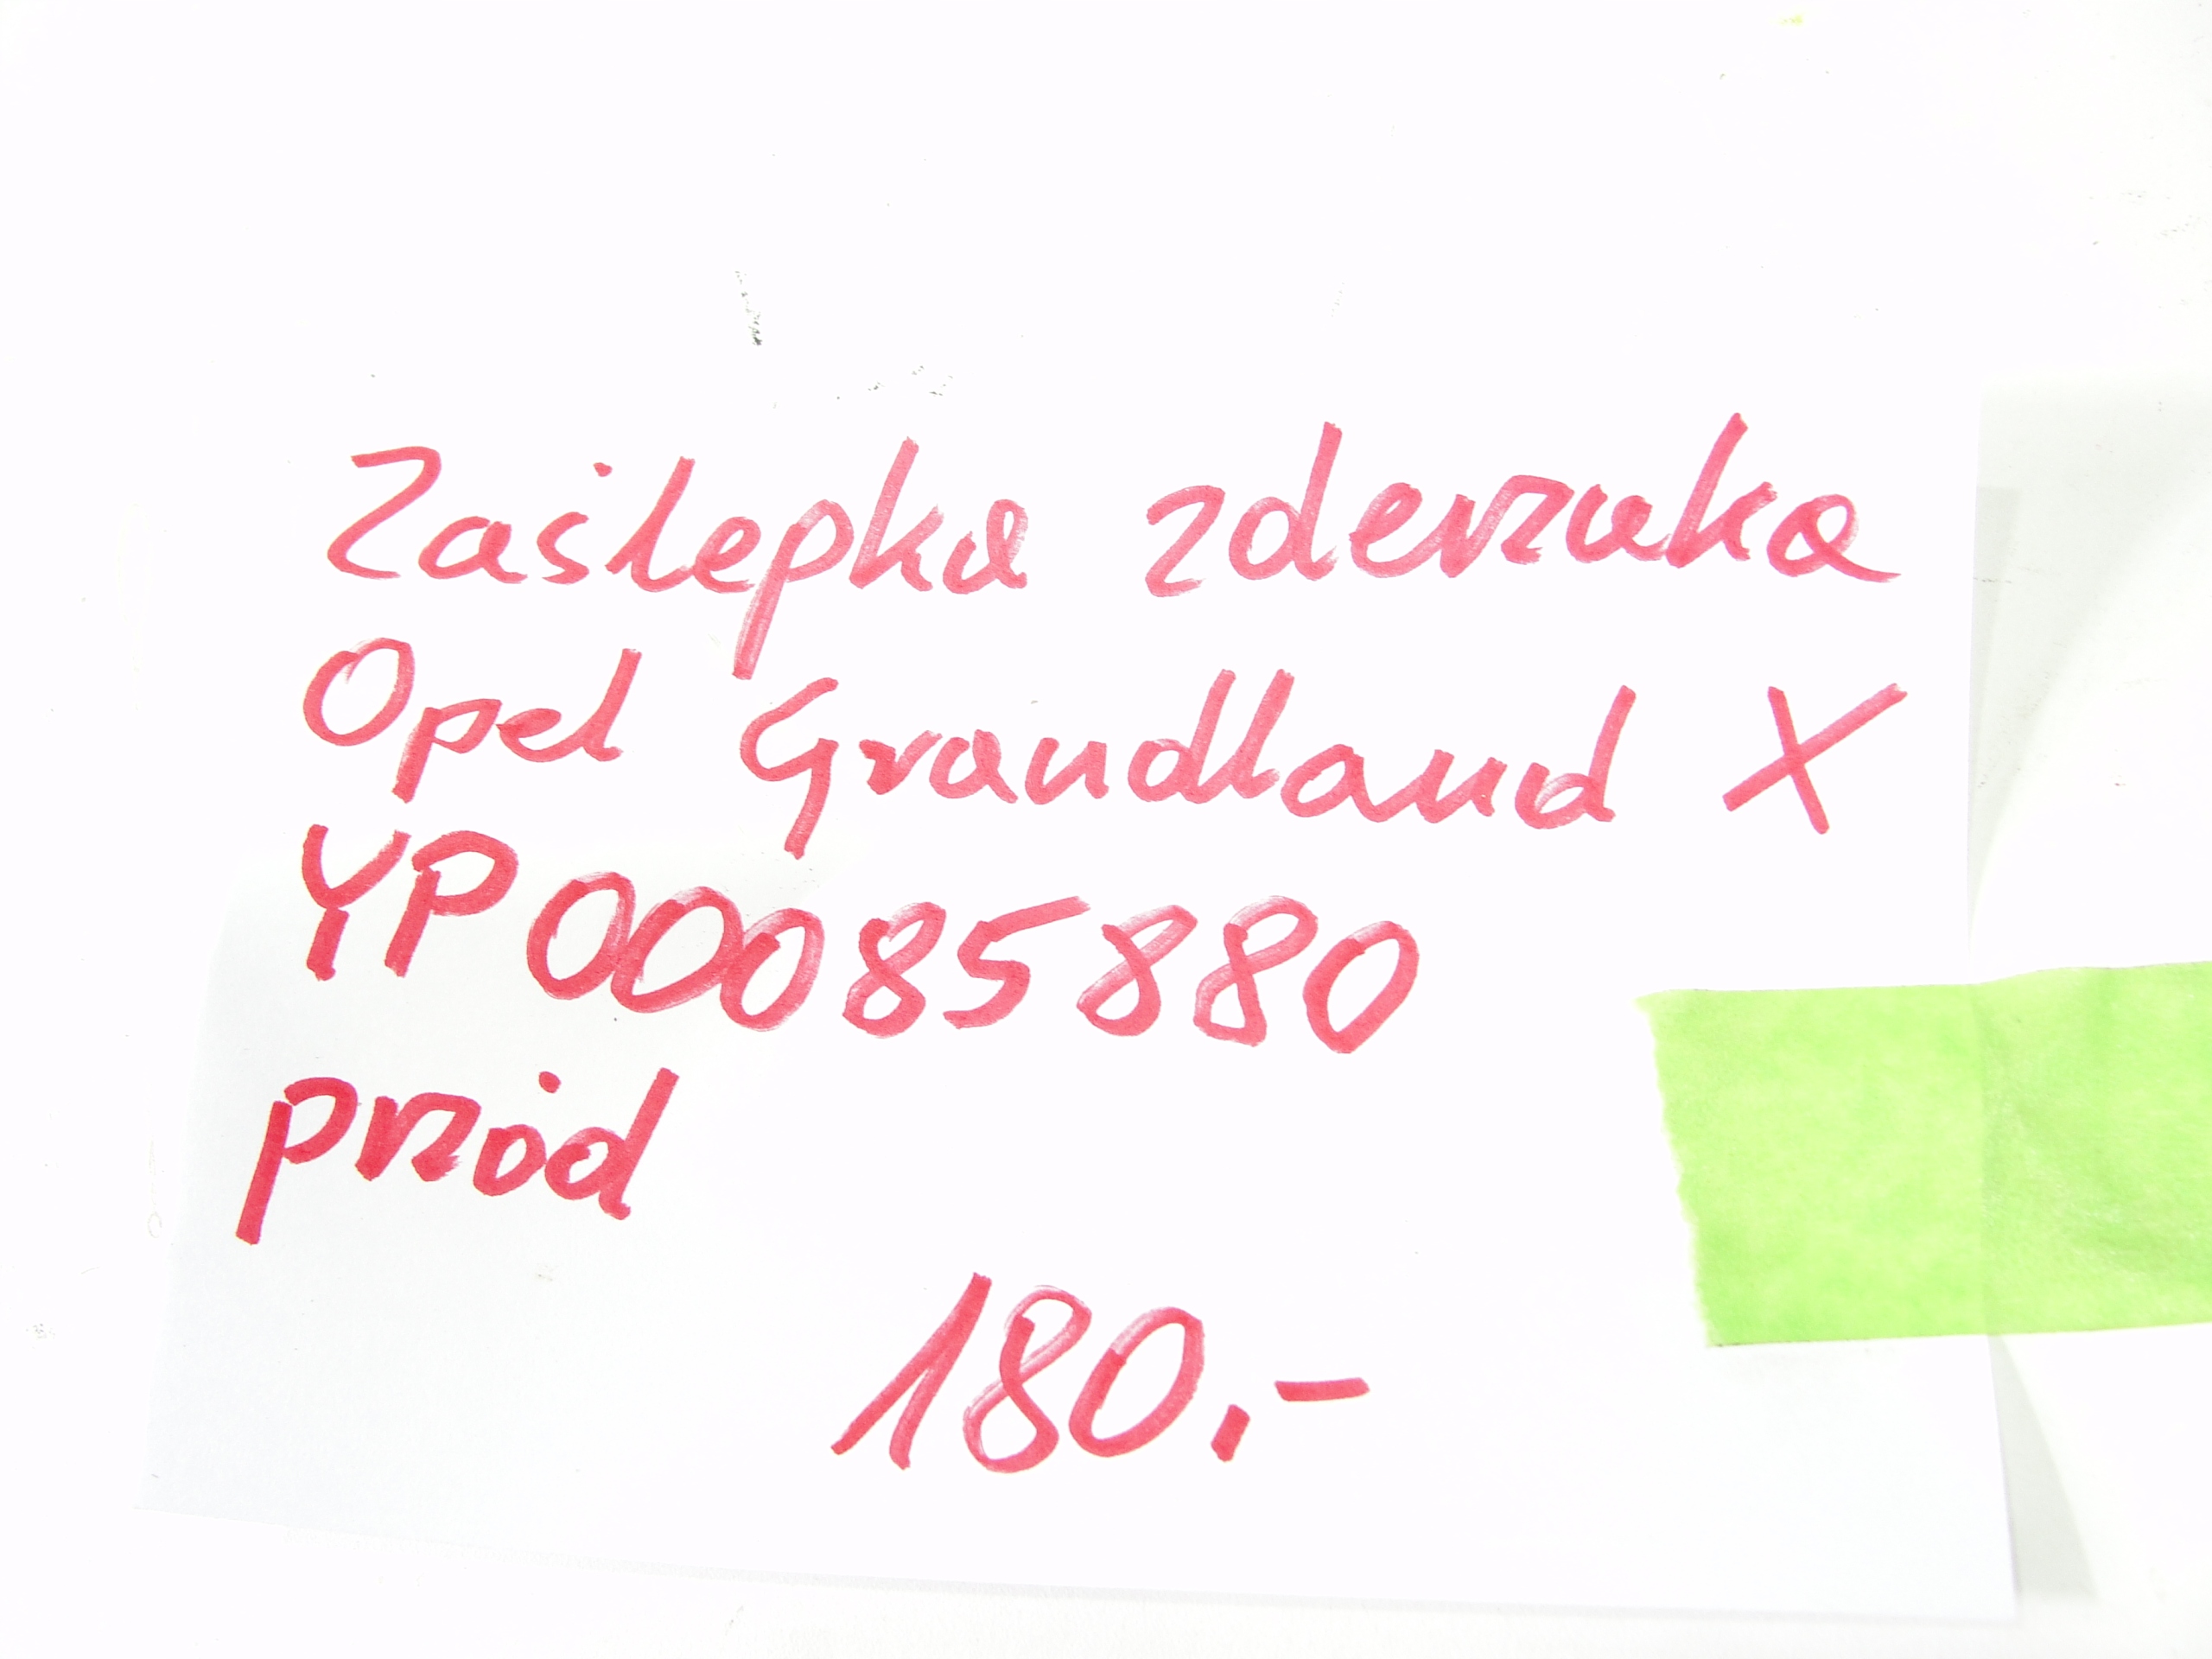 Zaślepka zderzaka
Opel Grandland X
YP00085880
przód
180.-